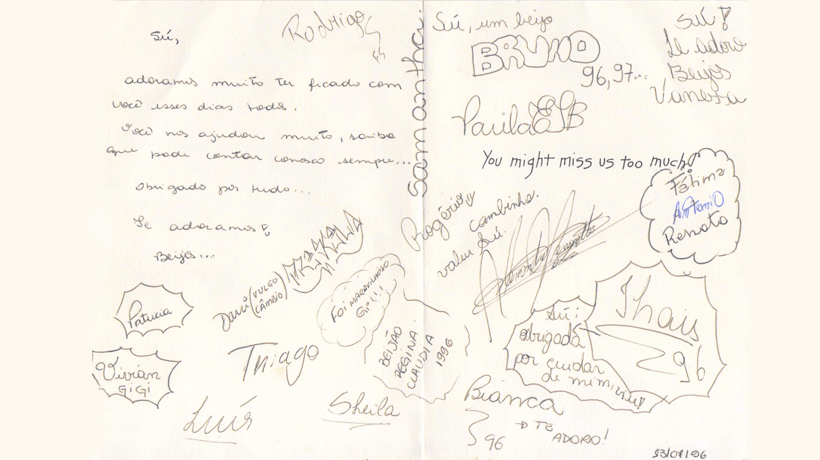 Sú,
adoramos muito ter ficado com
você esses dias todos.
Você nos ajudou muito, saiba
que pode contar conosco sempre...
Obrigado por tudo...
Te adoramos!
Beijos...
Rodrigo
Samantha
Sú, um beijo
BRUNO
96,97...
Sú!
Te adoro
Beijos
Vanessa
Paula
You might miss us too much!
Fátima
Antonio
Renato
Rogério
valeu Sú.
Davi (VULGO
CÂMBIO)
Foi MARAVILHOSO
Gi!!!
Patricia
Vivian
GiGi
Thiago
BEIJÃO
REGINA
CLAUDIA
1996
Luís
Sheila
Thais
96
Sú:
obrigada
por cuidar
de mim
Bianca
96
TE
ADORO!